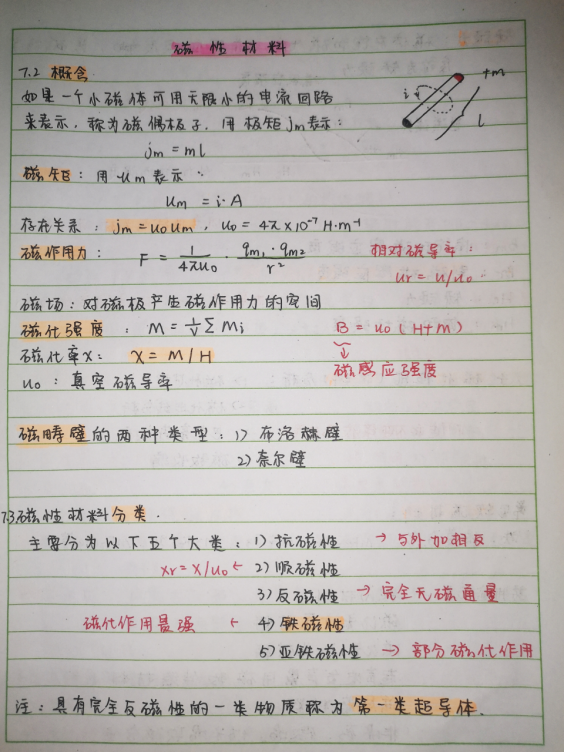 磁性材料
7.2 概念.
如果一个小磁体可用无限小的电流回路
来表示,称为磁偶极子,用极矩jm表示:
+m
i
l
jm = ml
磁矩:用 um 表示:
um = i·A
存在关系:jm=uoum, uo = 4π×10⁻⁷ H·m⁻¹
磁作用力: F = 1/4πuo · qm1·qm2/r²
相对磁导率:
ur = u/uo
磁场:对磁极产生磁作用力的空间
磁化强度:M = 1/V ∑ Mi
B = uo (H+m)
磁化率x: x = M/H
磁感应强度
uo:真空磁导率
磁畴壁的两种类型:1) 布洛赫壁
2) 奈尔壁
7.3磁性材料分类.
主要分为以下五个大类:1) 抗磁性 → 与外加相反
xr = x/uo ← 2) 顺磁性
3) 反磁性 → 完全无磁通量
磁化作用最强 ← 4) 铁磁性
5) 亚铁磁性 → 部分磁化作用
注:具有完全反磁性的一类物质称为第一类超导体.